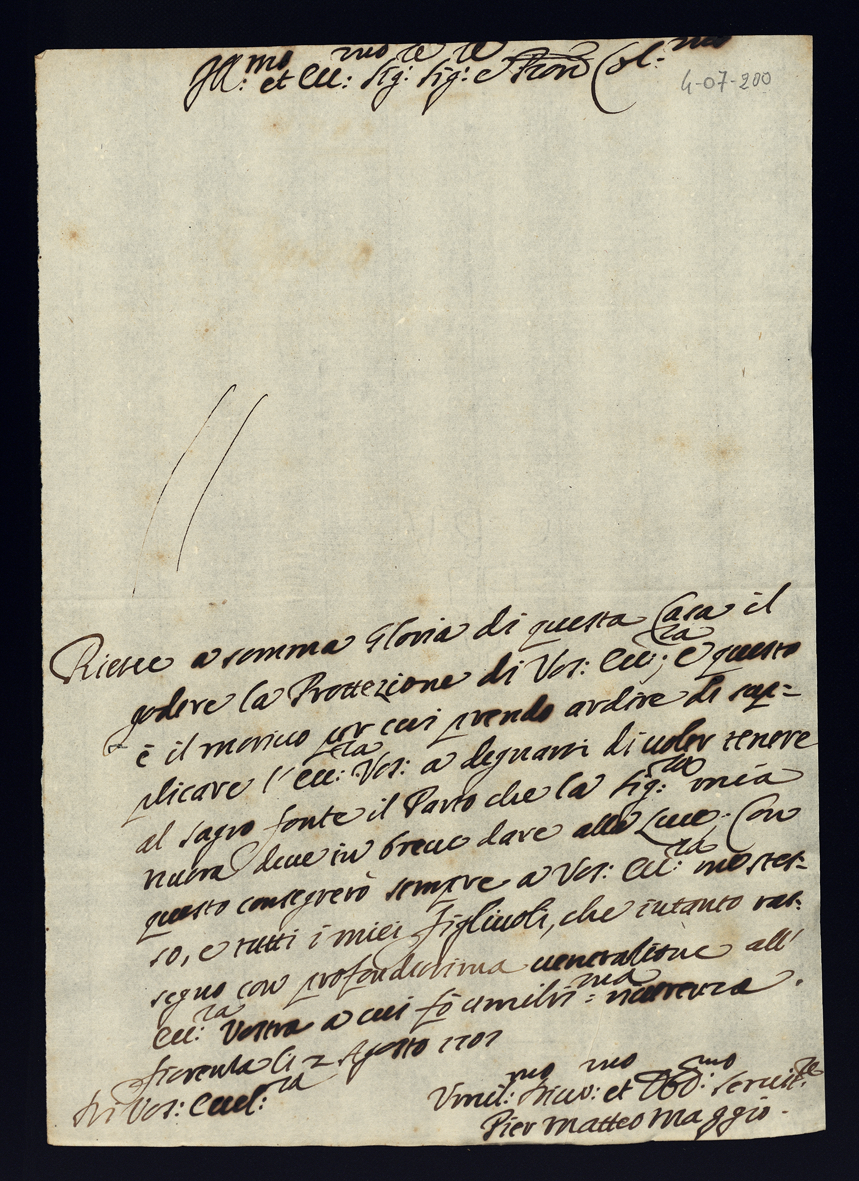 Ill.mo et Ecc.mo Sig.re Sig.re e Pron Col.mo
4-07-200
Riesce a somma Gloria di questa Casa il
godere la Protezione di Vos: Ecc:za; e questo
è il motivo per cui prendo ardire di sup=
plicare l'Ecc:za Vos: a degnarsi di voler tenere
al sagro fonte il Parto che la Sig:ra mia
nuora deve in breve dare alla Luce. Con
questo consegrerò sempre a Vos: Ecc:za me stes=
so, e tutti i miei figliuoli, che intanto ras=
segno con profondissima venerazione all'
Ecc:za Vostra a cui fò umilis=ma riverenza.
li 2 Agosto 1707
Di Vos: Eccel:za
Umil:mo et Obb:mo Servit:re
Pier Matteo Maggio.